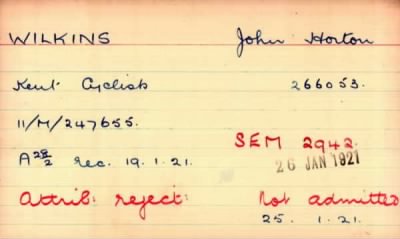 WILKINS John Horton
Kent Cyclists 266053.
11/M/247655.
SEM 2942.
A 28/2 rec. 19.1.21. 26 JAN 1921
Attrib: reject Not admitted
25. 1.21.